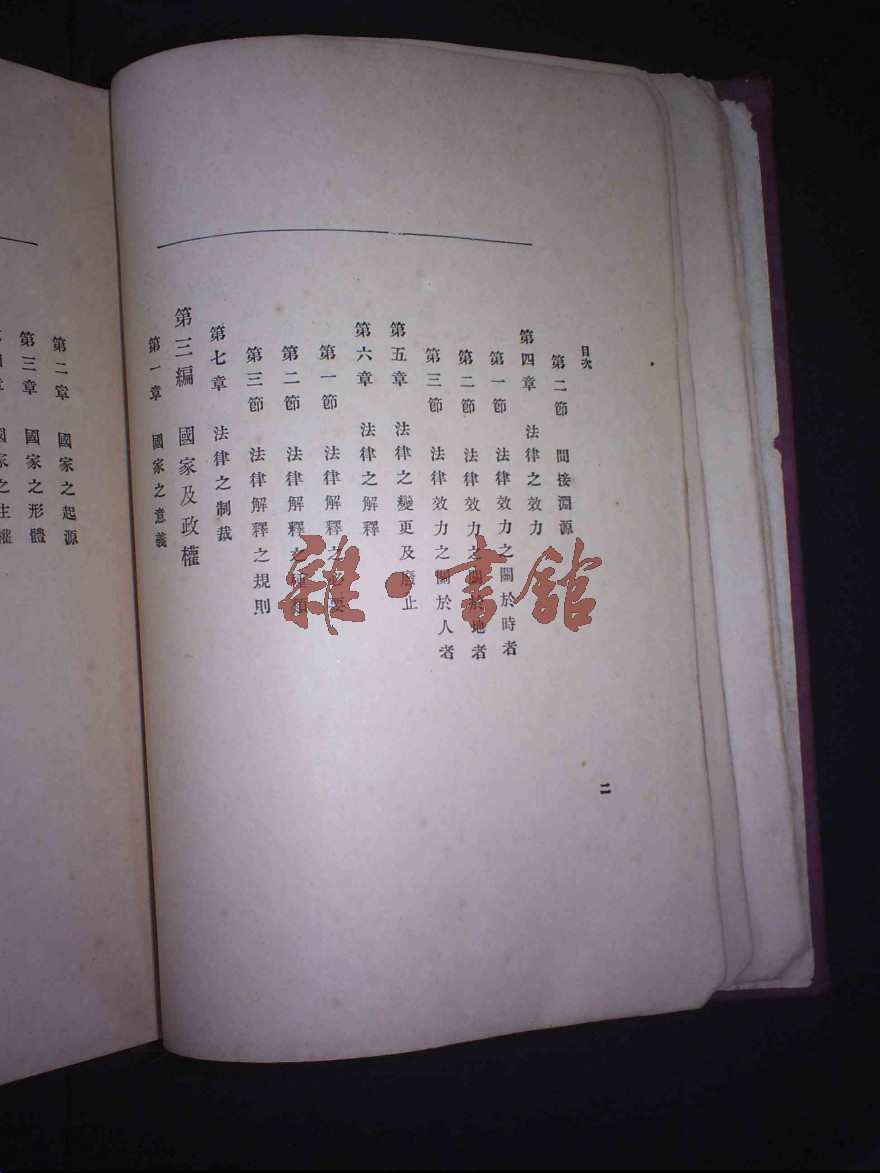 目次
第二節　間接淵源
第四章　法律之效力
第一節　法律效力之關於時者
第二節　法律效力之關於地者
第三節　法律效力之關於人者
第五章　法律之變更及廢止
第六章　法律之解釋
第一節　法律解釋之必要
第二節　法律解釋之種類
第三節　法律解釋之規則
第七章　法律之制裁
第三編　國家及政權
第一章　國家之意義
二
第二章　國家之起源
第三章　國家之形體
國家之主權
雜·書館